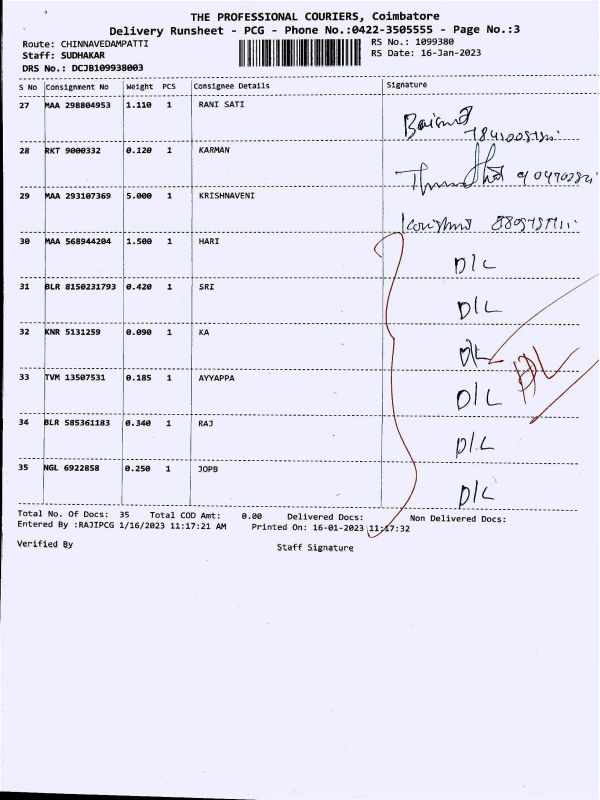 THE PROFESSIONAL COURIERS, Coimbatore
Delivery Runsheet - PCG - Phone No.:0422-3505555 - Page No.:3
Route: CHINNAVEDAMPATTI RS No.: 1099380
Staff: SUDHAKAR RS Date: 16-Jan-2023
DRS No.: DCJB109938003
S No Consignment No Weight PCS Consignee Details Signature
27 MAA 298804953 1.110 1 RANI SATI
28 RKT 9000332 0.120 1 KARMAN
29 MAA 293107369 5.000 1 KRISHNAVENI
30 MAA 568944204 1.500 1 HARI D/L
31 BLR 8150231793 0.420 1 SRI D/L
32 KNR 5131259 0.090 1 KA D/L
33 TVM 13507531 0.185 1 AYYAPPA D/L
34 BLR 585361183 0.340 1 RAJ D/L
35 NGL 6922858 0.250 1 JOPB D/L
Total No. Of Docs: 35 Total COD Amt: 0.00 Delivered Docs: Non Delivered Docs:
Entered By :RAJIPCG 1/16/2023 11:17:21 AM Printed On: 16-01-2023 11:17:32
Verified By Staff Signature